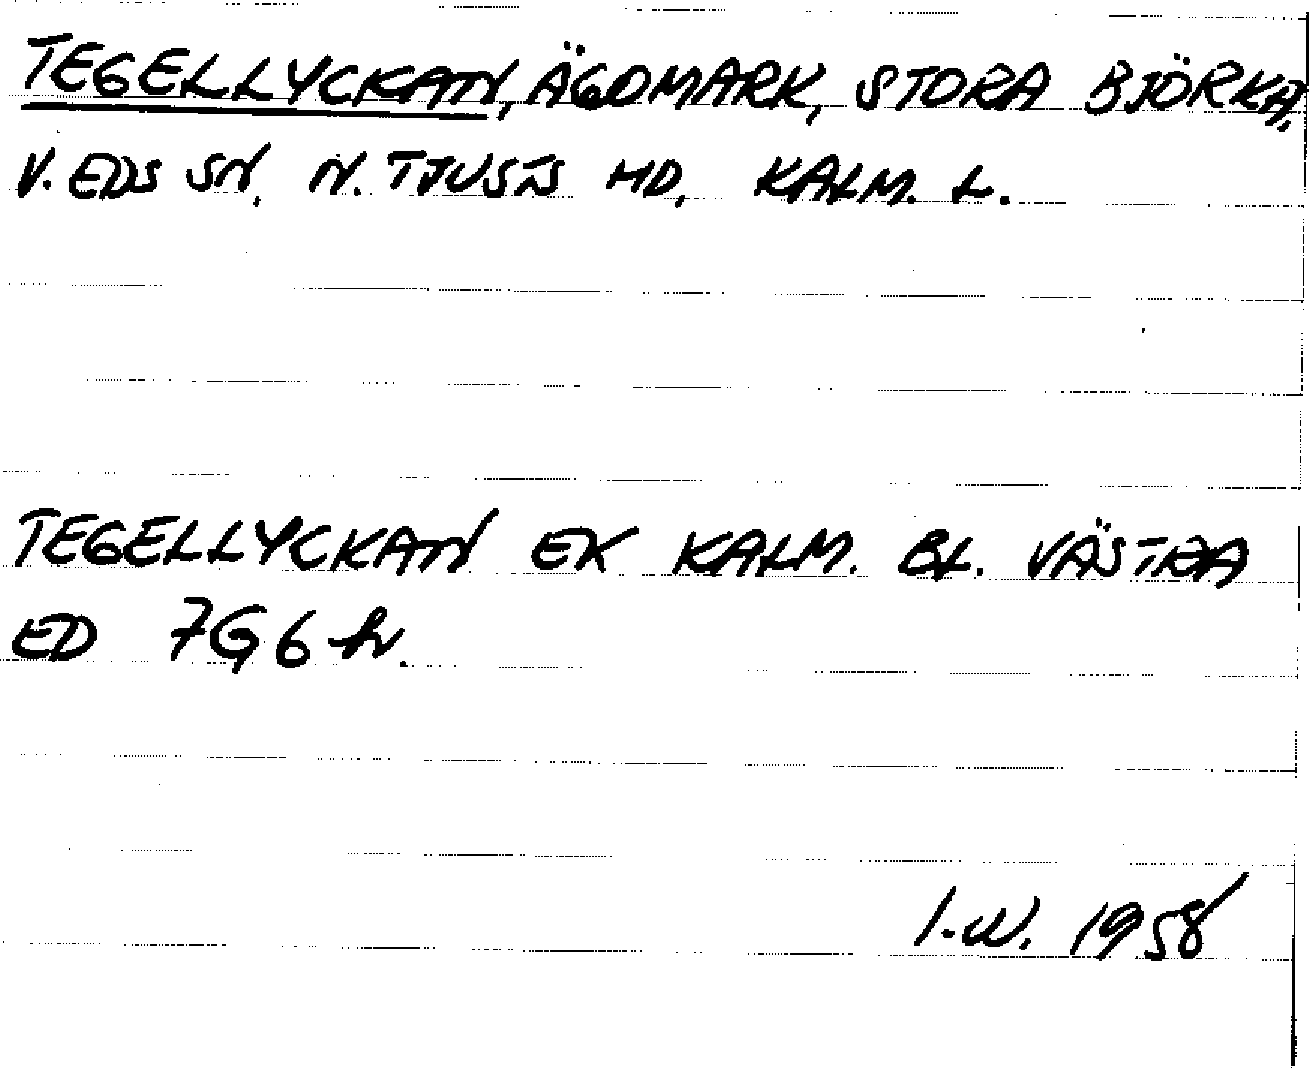 TEGELLYCKAN, ÄGOMARK, STORA BJÖRKA,
V. EDS SN, N. TJUSTS HD, KALM. L.
TEGELLYCKAN EK KALM. BL. VÄSTRA
ED 7G6h.
I.W. 1958